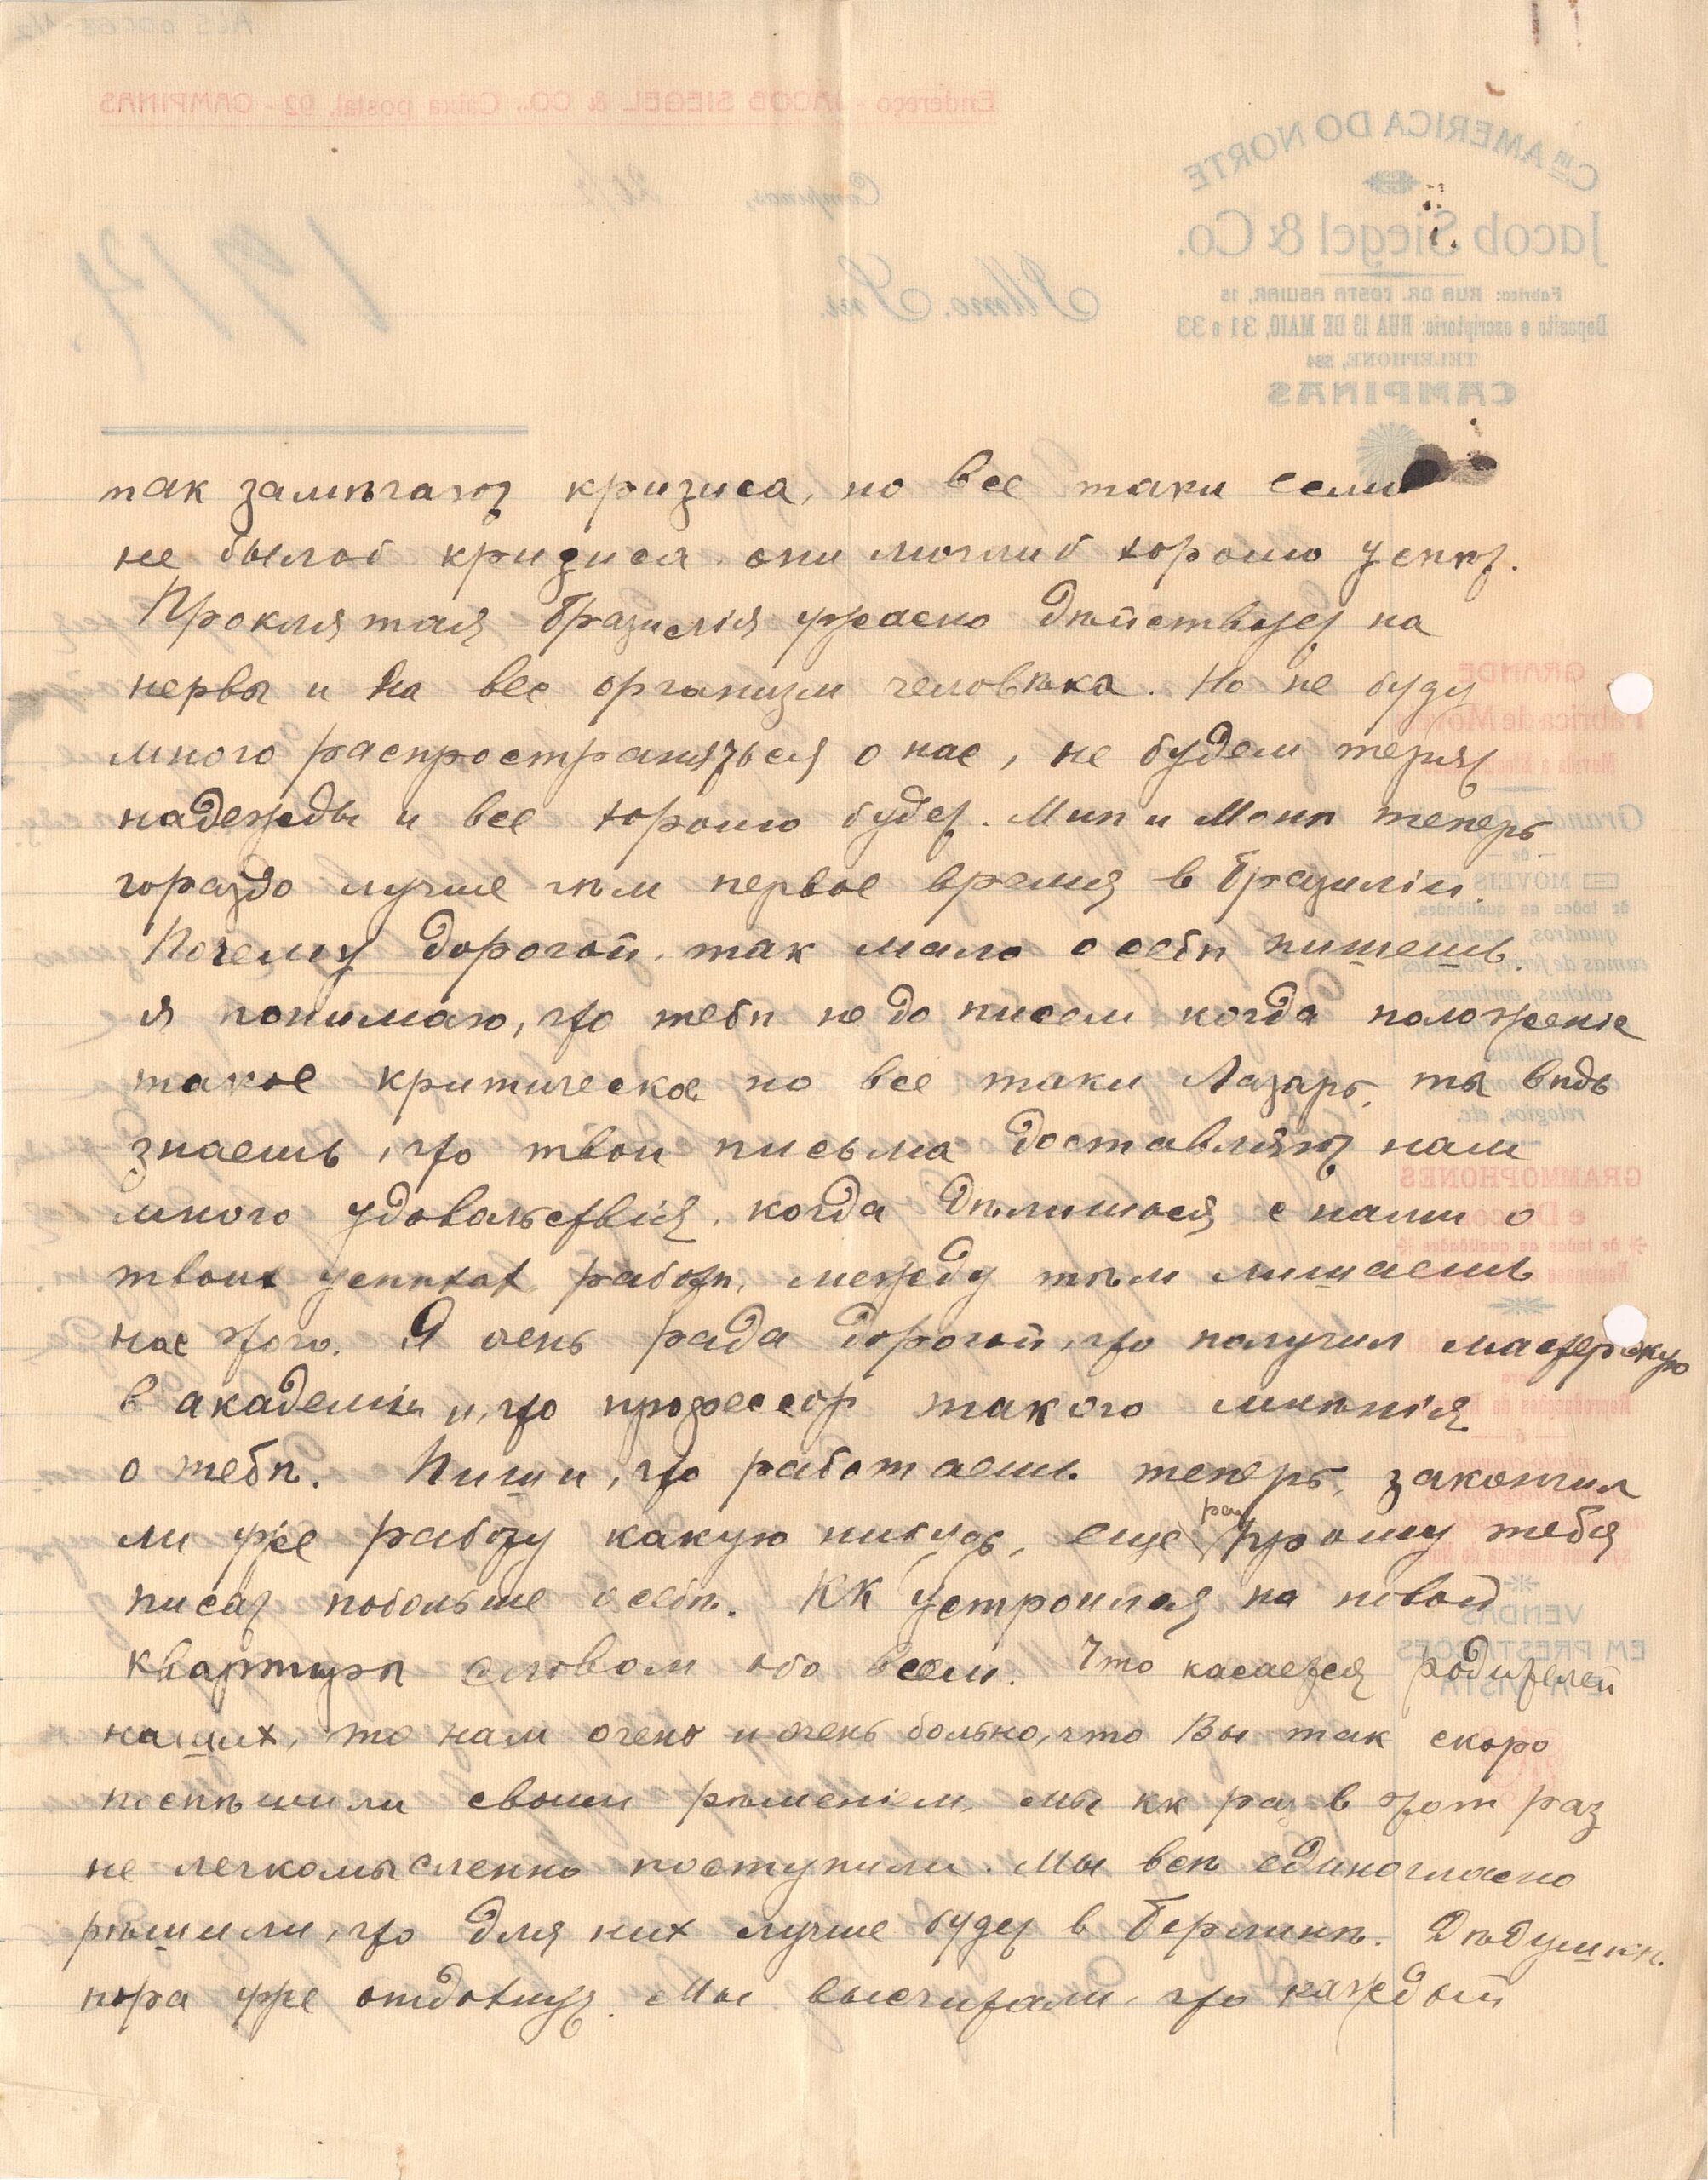 Endereço - JACOB SIEGEL & CO., Caixa postal, 92 - CAMPINAS
Cia AMERICA DO NORTE
Campinas,
Jacob Siegel & Co.
Illmo. Snr.
1917
Fabrica: RUA DR. COSTA AGUIAR, 15
Deposito e escriptorio: RUA 13 DE MAIO, 31 e 33
TELEPHONE, 594
CAMPINAS
так замѣчают кризиса, но все таки если
не былоб кризиса они моглиб хорошо успѣт.
Проклятая Бразилія ужасно дѣйствует на
нервы и на вес организм человѣка. Но не буду
много распространяться о нас, не будем терят
надежды и все хорошо будет. Мнѣ и Монѣ теперь
гораздо лучше чѣм первое время в Бразиліи.
Почему дорогой, так мало о себѣ пишешь.
я понимаю, что тебѣ не до писем когда положеніе
такое критическое но все таки Лазарь, ты вѣдь
знаешь, что твои письма доставляют нам
много удовольствія, когда дѣлишься с нами о
твоих успѣхах работѣ, между тѣм лишаешь
нас этого. Я очень рада дорогой, что получил мастерскую
в академіи и, что профессор такого мнѣнія
о тебѣ. Пиши, что работаешь теперь, закончил
ли уже работу какую нибудь, еще раз прошу тебя
писат побольше о себѣ. КК устроился на новой
квартирѣ словом обо всем. Что касается родителей
наших, то нам очень и очень больно, что Вы так скоро
поспѣшили своим рѣшеніем, мы кк раз в этот раз
не легкомысленно поступили. Мы всѣ единогласно
рѣшили, что для них лучше будет в Берлинѣ. Дѣдушкѣ.
пора уже отдохнут. Мы высчитали, что каждый
GRANDE
Fabrica de Moveis
MOVEIS
de todas as qualidades,
quadros, espelhos,
camas de ferro, colchões,
colchas, cortinas,
toalhas,
relogios, etc.
GRAMMOPHONES
e Discos
de todas as qualidades
VENDAS
EM PRESTAÇÕES